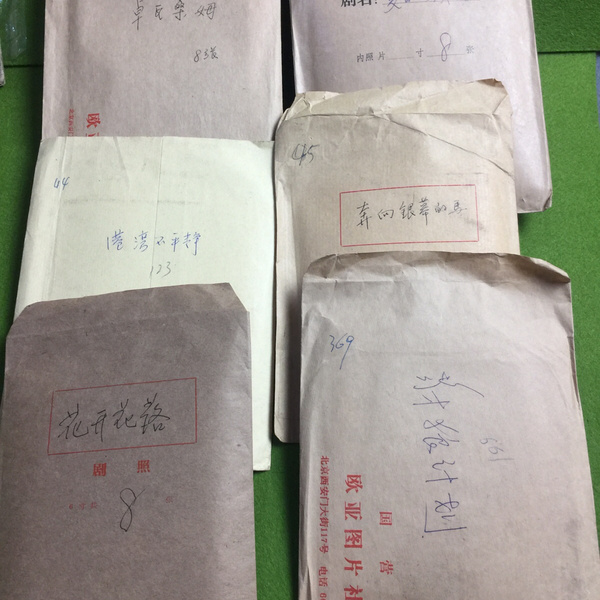 卓瓦桑姆
8张
欧亚
剧名:
内照片 寸 8 张
44
港湾不平静
123
445
奔向银幕的马
花开花落
剧照
8
369
猎狼计划
361
国营
欧亚图片社
北京西安门大街117号 电话